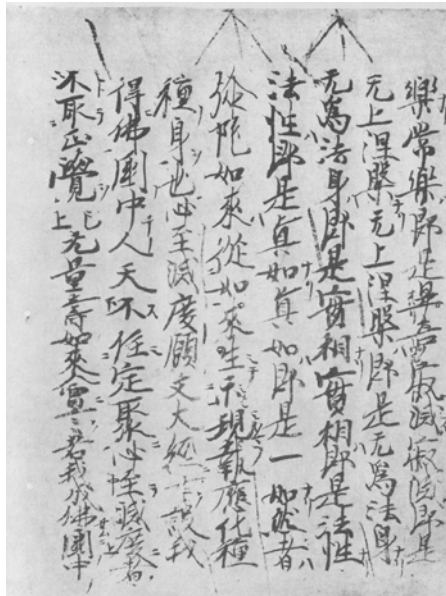 樂常樂即是畢竟寂滅寂滅即是
无上涅槃无上涅槃即是无爲法身
无爲法身即是實相實相即是法性
法性即是眞如眞如即是一如然者
弥陀如來從如來生示現報應化種
種身也必至滅度願文大經言設我
得佛國中人天不住定聚必至滅度者
不取正覺已上无量壽如來會言若我成佛國中